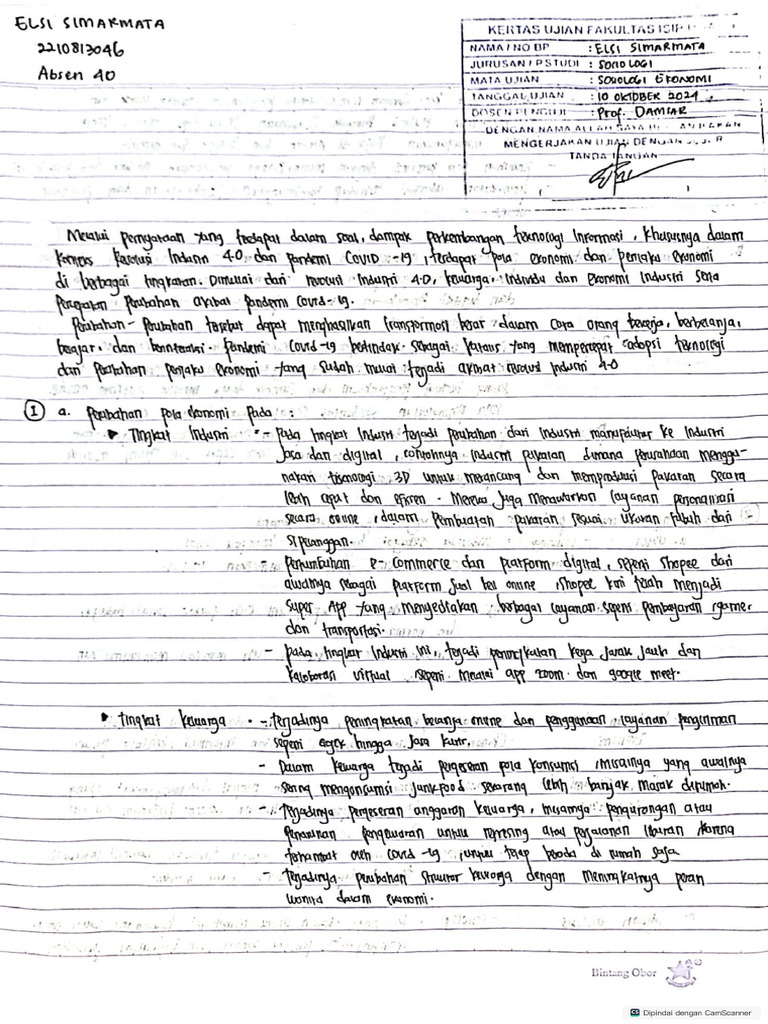 ELSI SIMARMATA
2210813046
Absen 40
KERTAS UJIAN FAKULTAS ISIP
NAMA / NO BP : ELSI SIMARMATA
JURUSAN / P STUDI : SOSIOLOGI
MATA UJIAN : SOSIOLOGI EKONOMI
TANGGAL UJIAN : 10 OKTOBER 2024
DOSEN PENGUJI : Prof. DAMSAR
DENGAN NAMA ALLAH SAYA
MENGERJAKAN UJIAN DENGAN
TANDA TANGAN
Melalui pernyataan yang terdapat dalam soal, dampak perkembangan teknologi informasi, khususnya dalam
konteks Revolusi Industri 4.0 dan pandemi COVID-19, terdapat pola ekonomi dan perilaku ekonomi
di berbagai tingkatan. Dimulai dari revolusi industri 4.0, keluarga, individu dan ekonomi industri serta
perubahan akibat pandemi covid-19.
Perubahan-perubahan tersebut dapat menghasilkan transformasi besar dalam cara orang bekerja, berbelanja,
belajar, dan berinteraksi. Pandemi Covid-19 bertindak sebagai katalis yang mempercepat adopsi teknologi
dan perubahan perilaku ekonomi yang sudah mulai terjadi akibat revolusi industri 4.0
1 a. Perubahan pola ekonomi pada :
▸ Tingkat Industri :- Pada tingkat Industri terjadi perubahan dari industri manufaktur ke industri
jasa dan digital, contohnya industri pakaian dimana perusahaan menggu-
nakan teknologi 3D untuk merancang dan memproduksi pakaian secara
lebih cepat dan efisien. Mereka juga menawarkan layanan personalisasi
secara online, dalam pembuatan pakaian sesuai ukuran tubuh dari
si pelanggan.
Pertumbuhan e-commerce dan platform digital, seperti Shopee dari
awalnya sebagai platform jual beli online, shopee kini telah menjadi
super App yang menyediakan berbagai layanan seperti pembayaran, games
dan transportasi.
- Pada tingkat Industri ini, terjadi peningkatan kerja jarak jauh dan
kolaborasi virtual seperti melalui app zoom dan google meet.
▸ Tingkat keluarga :- Terjadinya peningkatan belanja online dan penggunaan layanan pengiriman
seperti gojek hingga jasa kurir.
- Dalam keluarga terjadi pergeseran pola konsumsi, misalnya yang awalnya
sering mengonsumsi junkfood sekarang lebih banyak masak dirumah.
- Terjadinya pergeseran anggaran keluarga, misalnya pengurangan atau
penurunan pengeluaran untuk refresing atau perjalanan liburan karena
terhambat oleh covid-19, untuk tetap berada di rumah saja
- Terjadinya perubahan struktur keluarga dengan meningkatnya peran
wanita dalam ekonomi.
Bintang Obor
Dipindai dengan CamScanner